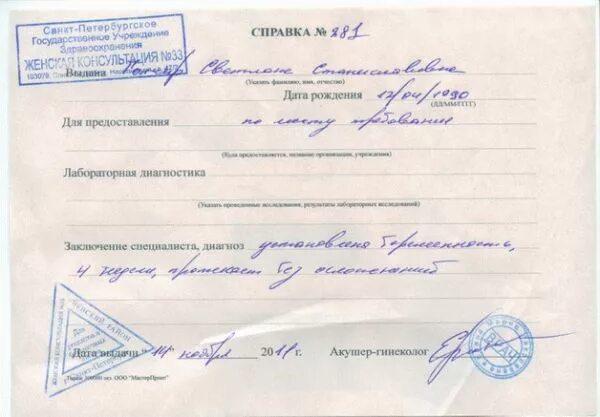 Санкт-Петербургское
Государственное Учреждение
Здравоохранения
ЖЕНСКАЯ КОНСУЛЬТАЦИЯ №33
СПРАВКА № 281
Выдана Светлане Станиславовна
(Указать фамилию, имя, отчество)
Дата рождения 12/04/1990
(ДД/ММ/ГГГГ)
Для предоставления по месту требования
(Куда предоставляется, название организации, учреждения)
Лабораторная диагностика
(Указать проведенные исследования, результаты лабораторных исследований)
Заключение специалиста, диагноз установлена беременность,
4 недели, протекает без осложнений
ЖЕНСКАЯ КОНСУЛЬТАЦИЯ №33
НЕВСКИЙ РАЙОН
Для
Санкт-Петербург
Дата выдачи 14 ноября 2011г. Акушер-гинеколог
ВРАЧ
Тираж 300000 экз. ООО "МастерПринт"